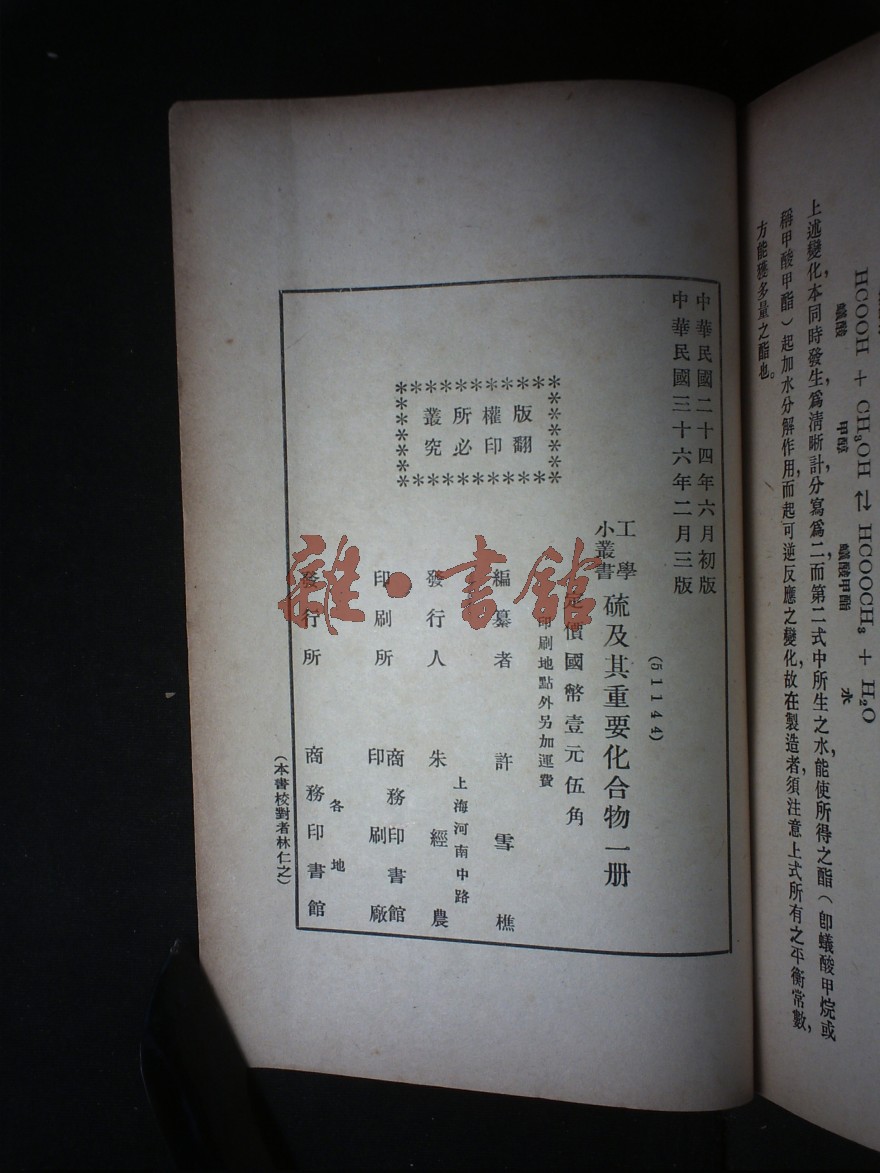 HCOOH + CH₃OH ⇄ HCOOCH₃ + H₂O
蟻酸 甲醇 蟻酸甲酯 水
上述變化，本同時發生，爲淸晰計，分寫爲二，而第二式中所生之水，能使所得之酯（卽蟻酸甲烷或
稱甲酸甲酯）起加水分解作用，而起可逆反應之變化，故在製造者，須注意上式所有之平衡常數，
方能獲多量之酯也。
中華民國二十四年六月初版
中華民國三十六年二月三版
(51144)
工學小叢書 硫及其重要化合物一册
定價國幣壹元伍角
印刷地點外另加運費
版權所叢
翻印必究
編纂者 許雪樵
上海河南中路
發行人 朱經農
印刷所 商務印書館印刷廠
各地
發行所 商務印書館
（本書校對者林仁之）
雜·書館